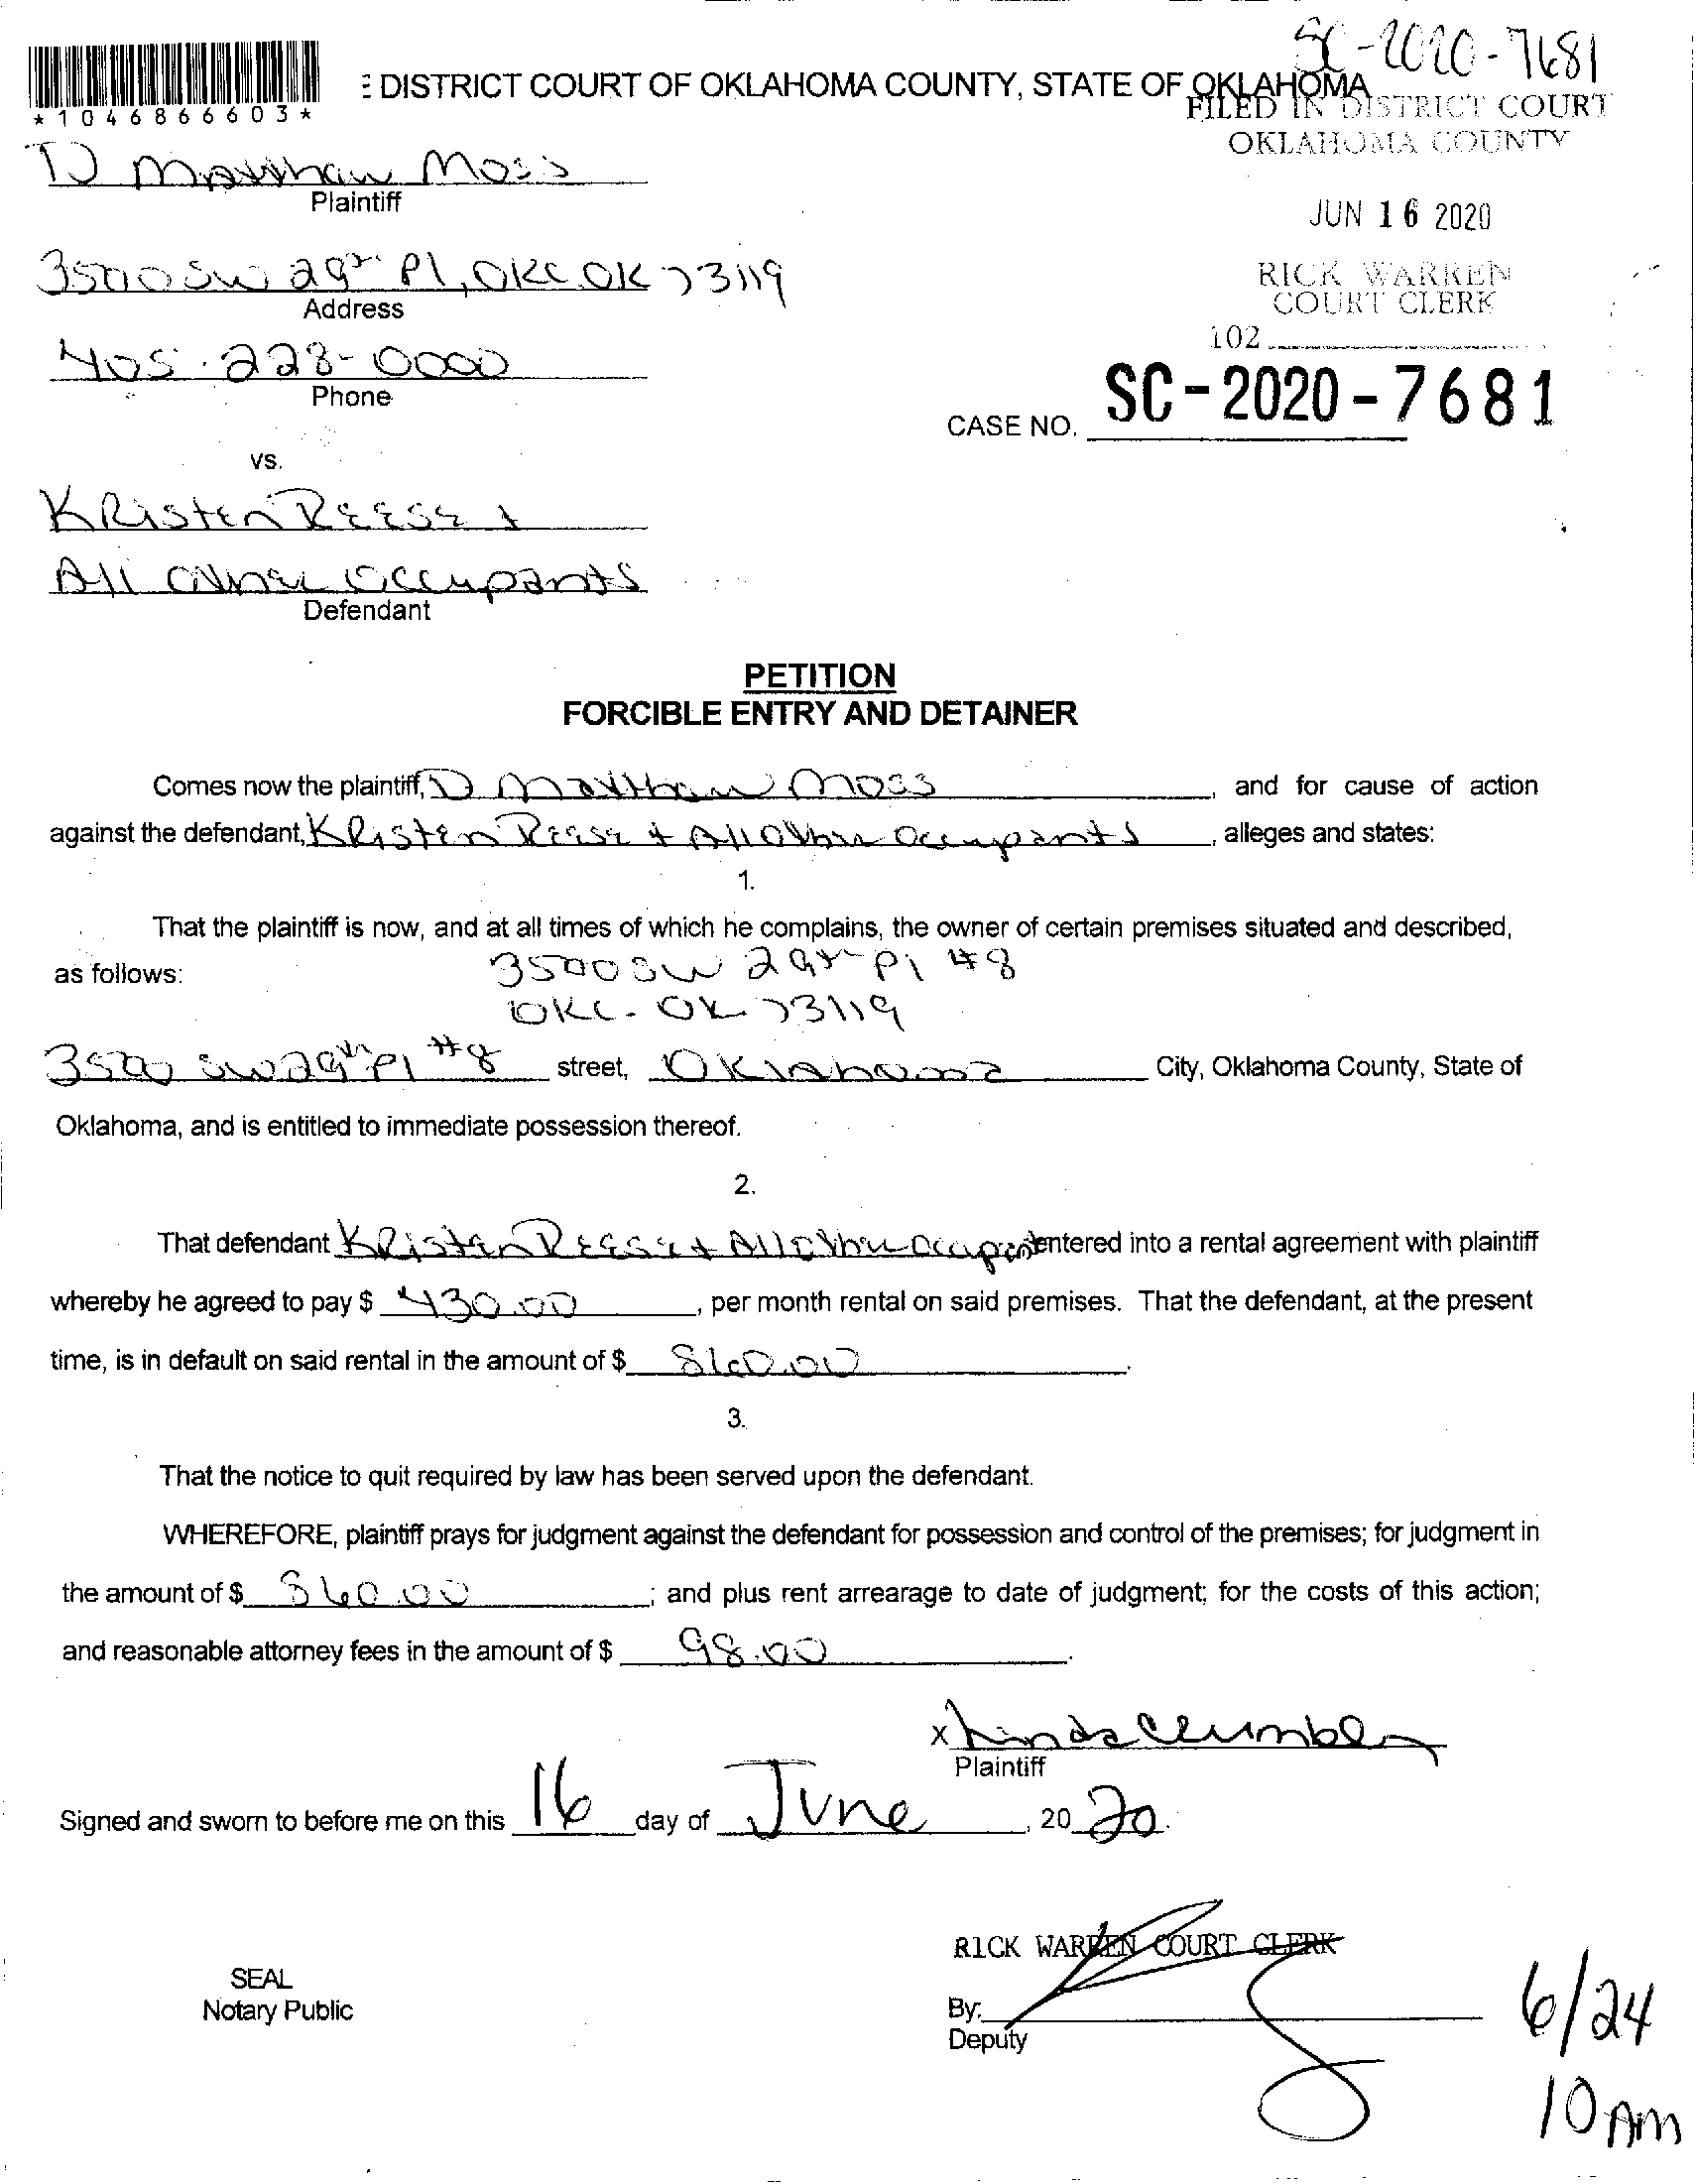 SC-2020-7681
E DISTRICT COURT OF OKLAHOMA COUNTY, STATE OF OKLAHOMA
*1046866603*
FILED IN DISTRICT COURT
OKLAHOMA COUNTY
D Matthew Moss
Plaintiff
JUN 16 2020
3500 SW 29th Pl, OKC OK 73119
Address
RICK WARREN
COURT CLERK
102
405-228-0000
Phone
CASE NO. SC-2020-7681
vs.
Kristen Reese +
All Other Occupants
Defendant
PETITION
FORCIBLE ENTRY AND DETAINER
Comes now the plaintiff, D Matthew Moss, and for cause of action
against the defendant, Kristen Reese + All Other Occupants, alleges and states:
1.
That the plaintiff is now, and at all times of which he complains, the owner of certain premises situated and described,
as follows: 3500 SW 29th Pl #8
OKC. OK 73119
3500 SW 29th Pl #8 street, Oklahoma City, Oklahoma County, State of
Oklahoma, and is entitled to immediate possession thereof.
2.
That defendant Kristen Reese + All Other Occupants entered into a rental agreement with plaintiff
whereby he agreed to pay $ 430.00, per month rental on said premises. That the defendant, at the present
time, is in default on said rental in the amount of $ 860.00.
3.
That the notice to quit required by law has been served upon the defendant.
WHEREFORE, plaintiff prays for judgment against the defendant for possession and control of the premises; for judgment in
the amount of $ 860.00; and plus rent arrearage to date of judgment; for the costs of this action;
and reasonable attorney fees in the amount of $ 98.00.
x Linda Crumbley
Plaintiff
Signed and sworn to before me on this 16 day of June, 20 20.
RICK WARREN COURT CLERK
SEAL
Notary Public
By:
Deputy
6/24
10 Am